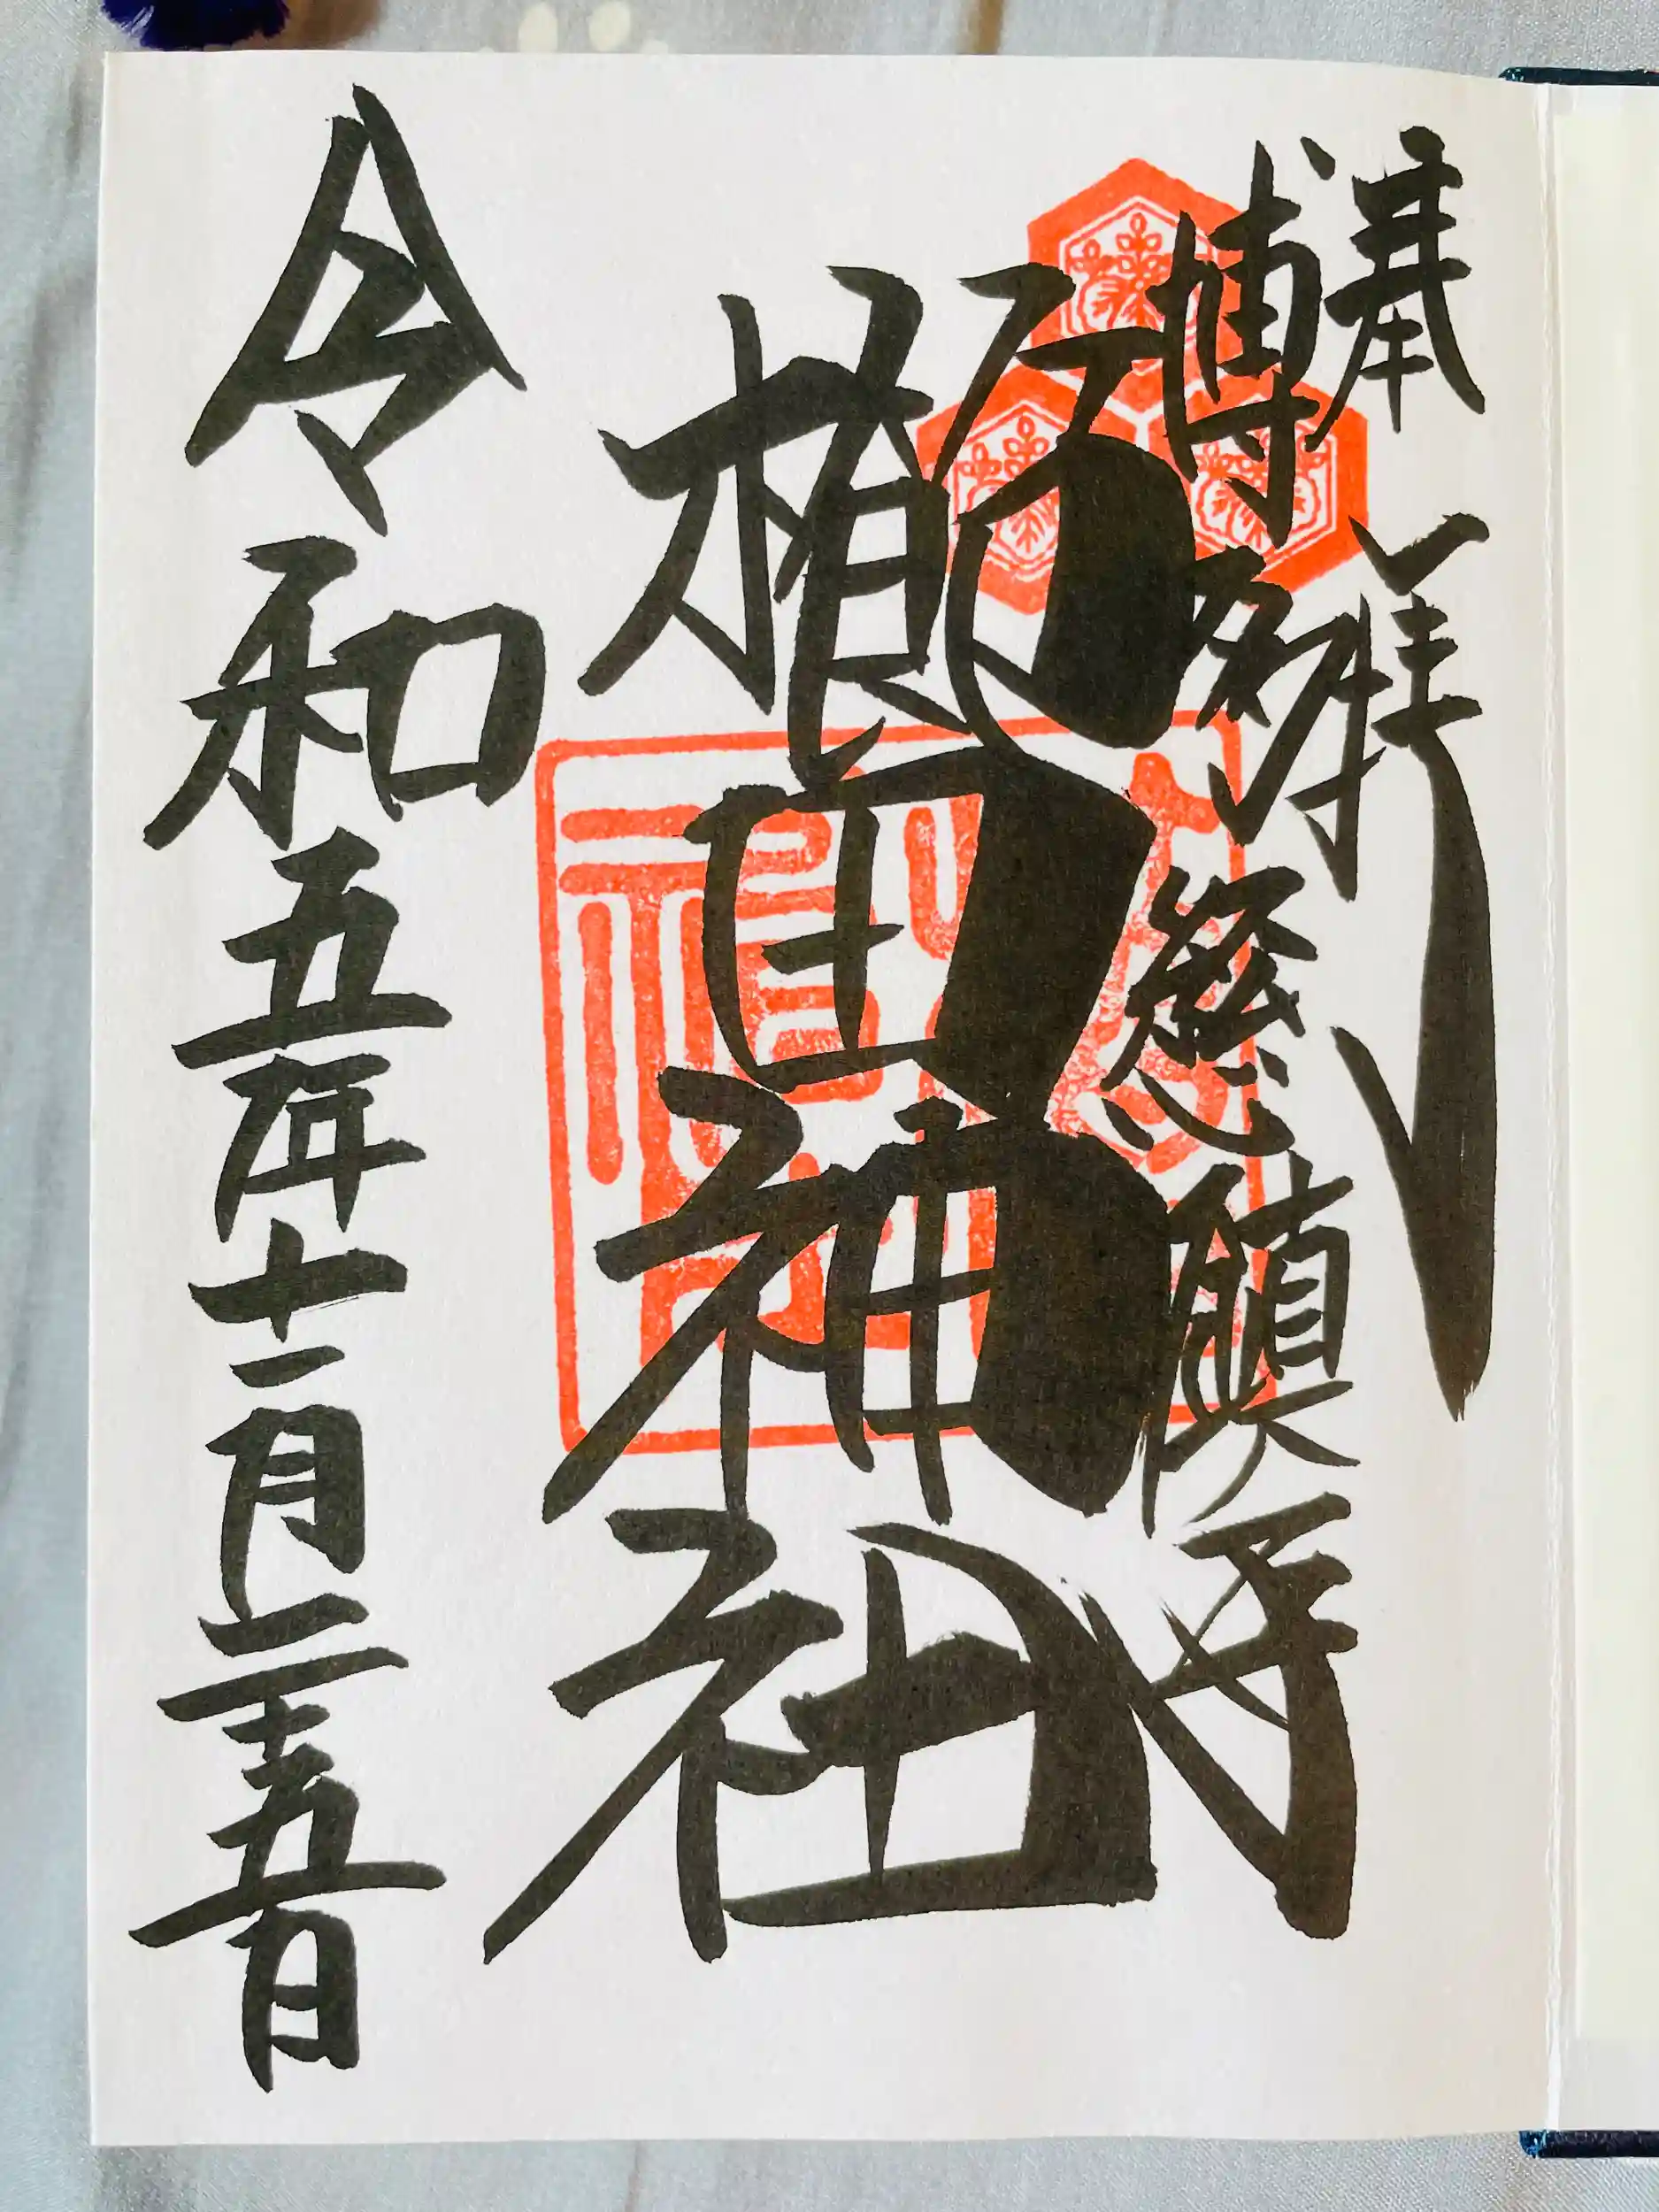 奉拝
博多総鎮守
櫛田神社
令和五年十一月二十五日